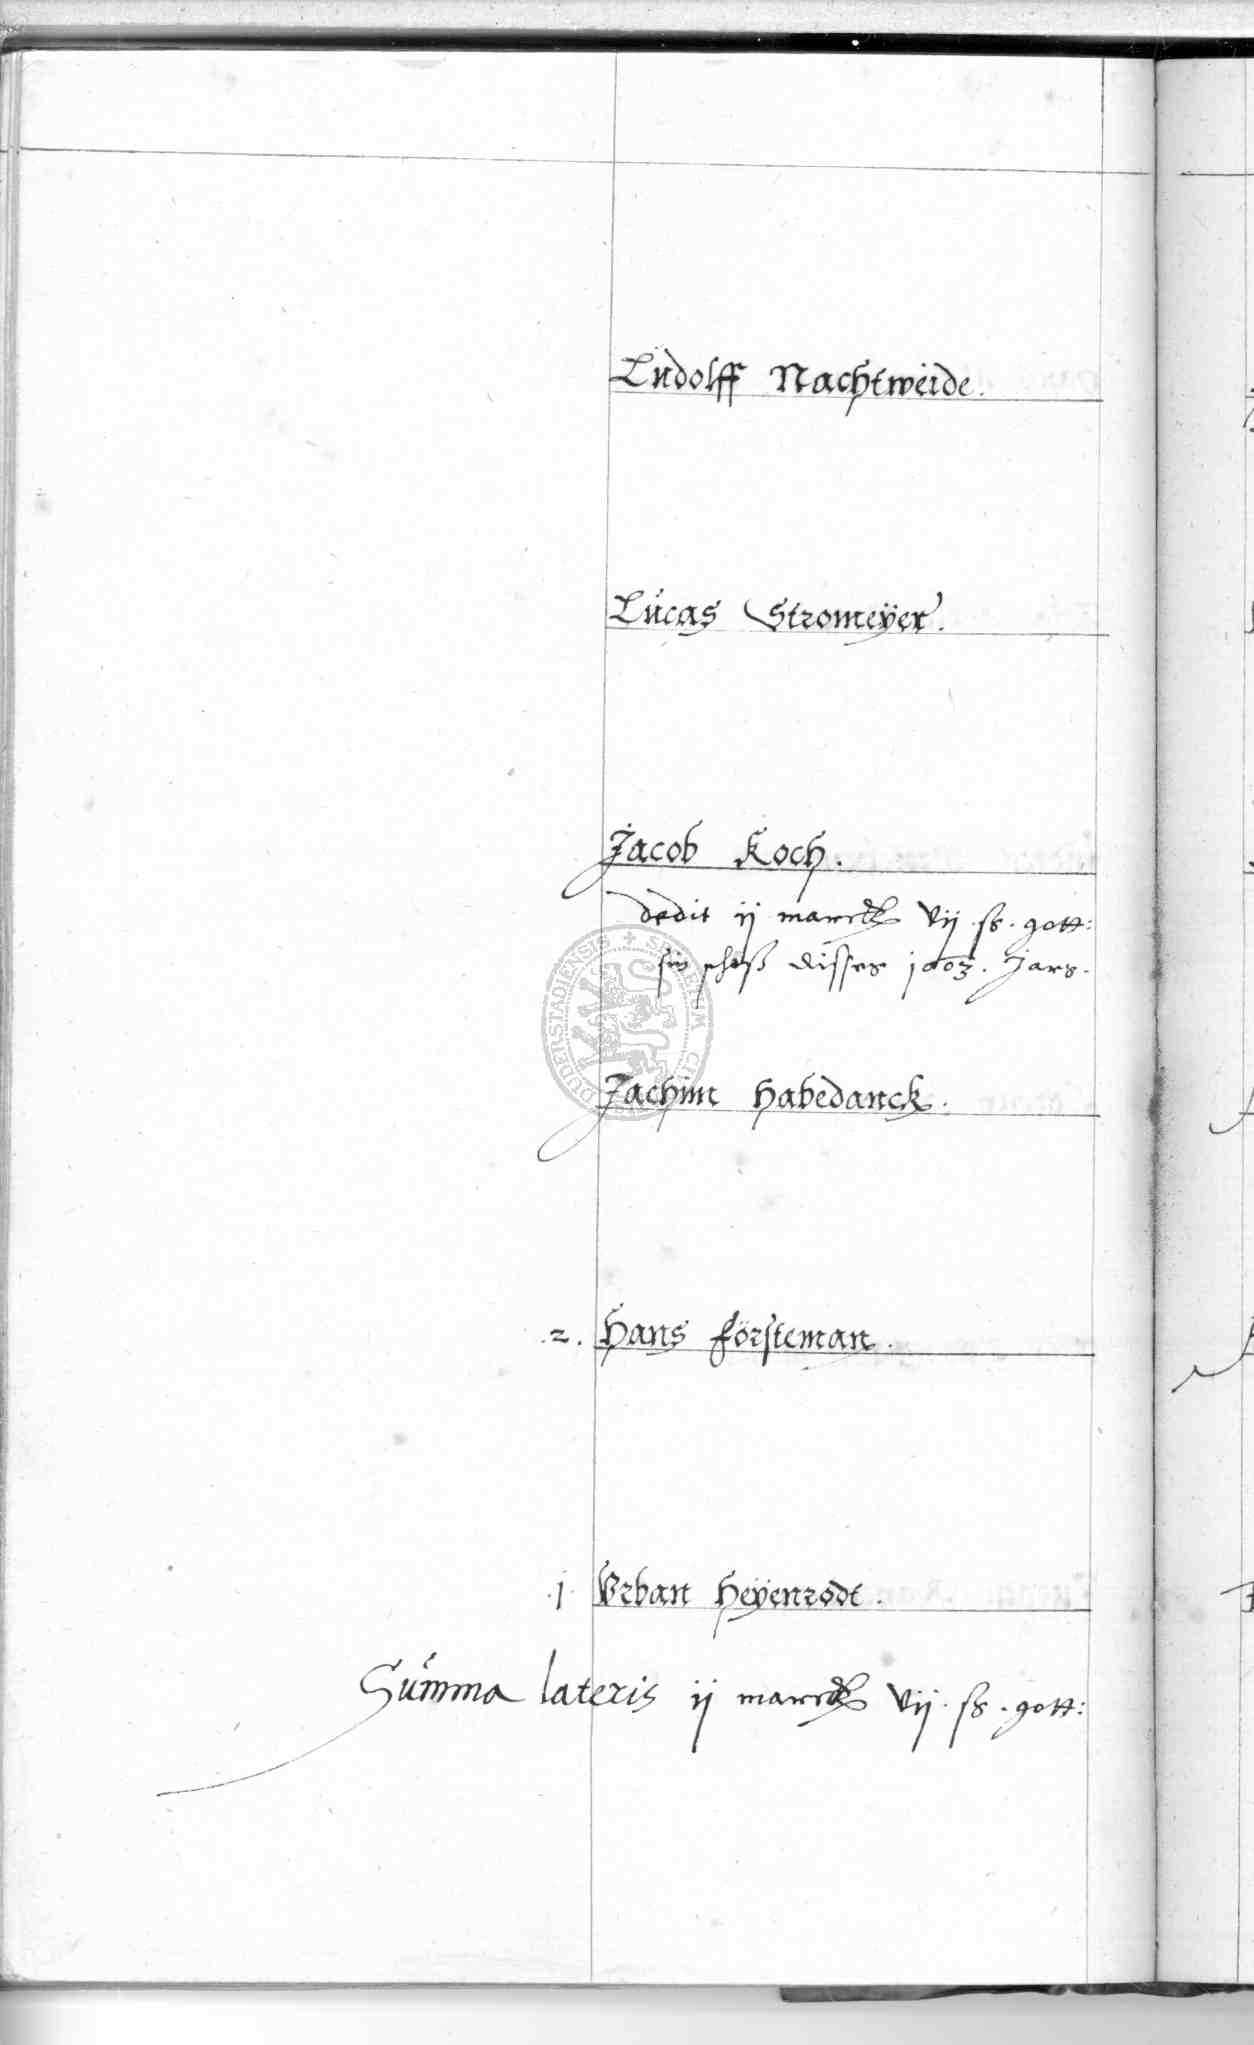 Ludolff Nachtweide.
Lucas Stromeÿer.
Jacob Koch.
dedit ij marck vij ß. gott:
sin schoß disses 1603. Jars.
Jachim Habedanck.
.2. Hans Försteman.
.j. Vrban Heÿenrodt.
Summa lateris ij marck vij. ß. gott: